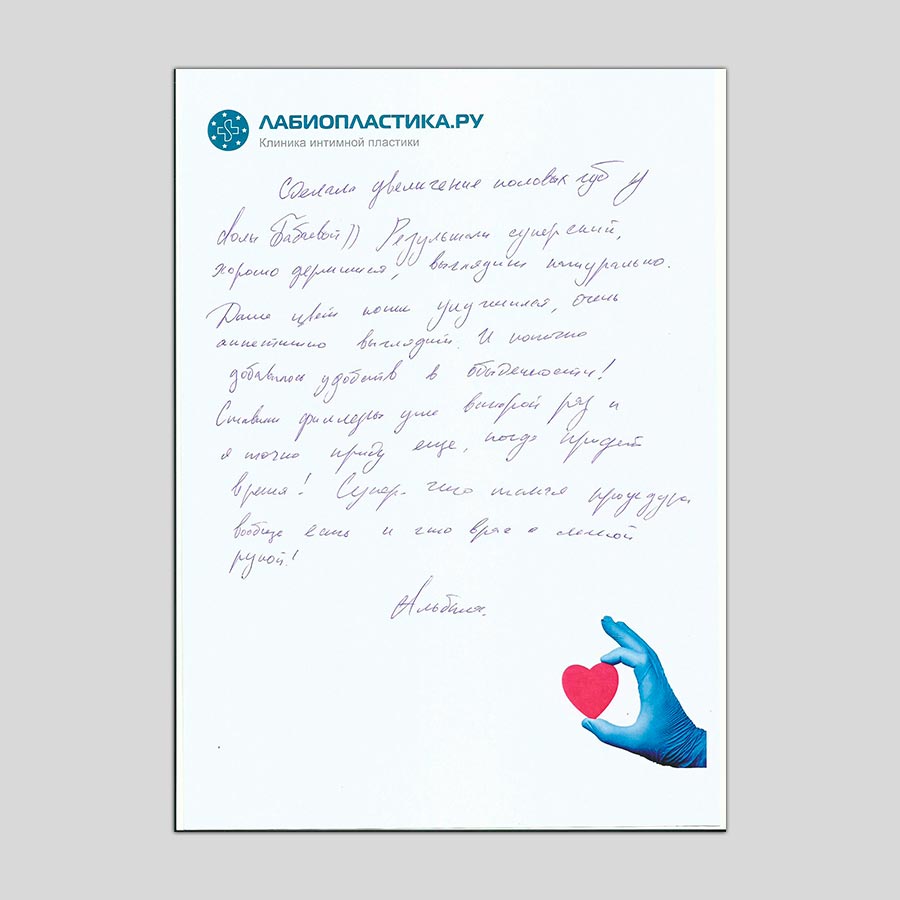 ЛАБИОПЛАСТИКА.РУ
Клиника интимной пластики
Сделала увеличение половых губ у
Лолы Бабаевой)) Результат суперский,
хорошо держится, выглядит натурально.
Даже цвет кожи улучшился, очень
аппетитно выглядит. И конечно
добавилось удобств в обыденности!
Ставили филлеры уже второй раз и
я точно приду еще, когда придет
время! Супер что такая процедура
вообще есть и что врач с легкой
рукой!